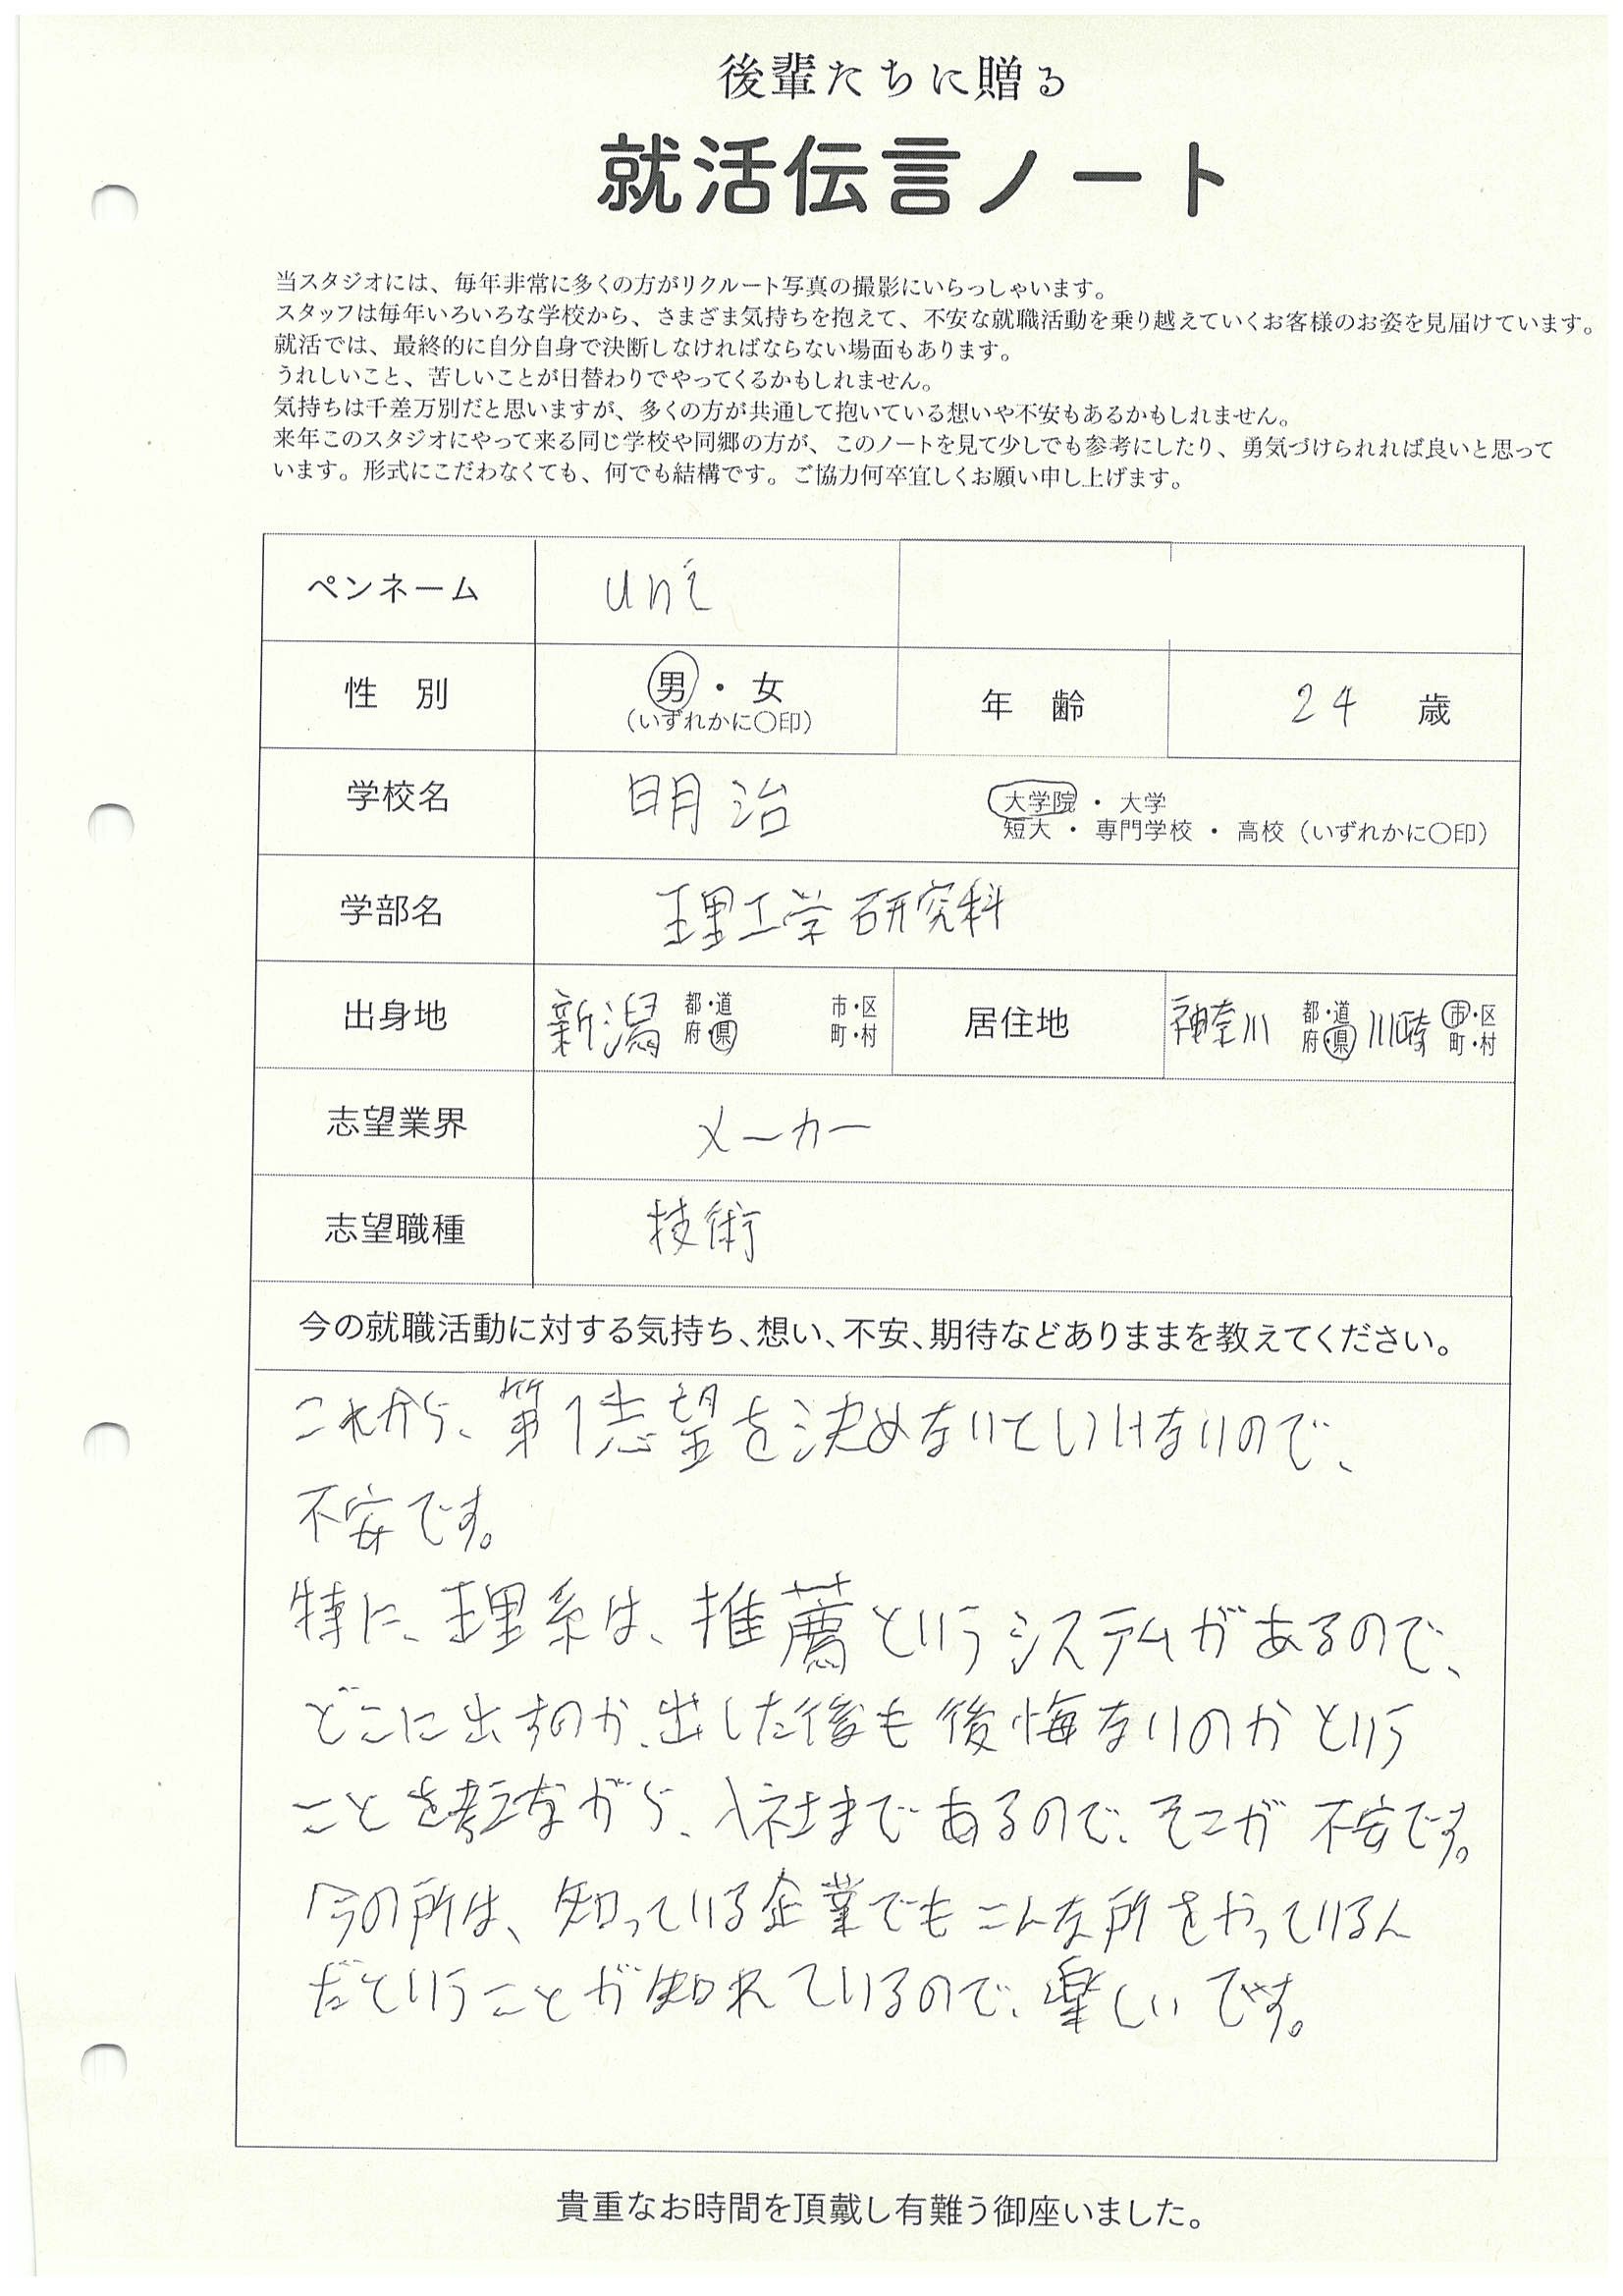 後輩たちに贈る
就活伝言ノート
当スタジオには、毎年非常に多くの方がリクルート写真の撮影にいらっしゃいます。
スタッフは毎年いろいろな学校から、さまざま気持ちを抱えて、不安な就職活動を乗り越えていくお客様のお姿を見届けています。
就活では、最終的に自分自身で決断しなければならない場面もあります。
うれしいこと、苦しいことが日替わりでやってくるかもしれません。
気持ちは千差万別だと思いますが、多くの方が共通して抱いている想いや不安もあるかもしれません。
来年このスタジオにやって来る同じ学校や同郷の方が、このノートを見て少しでも参考にしたり、勇気づけられれば良いと思って
います。形式にこだわなくても、何でも結構です。ご協力何卒宜しくお願い申し上げます。
ペンネーム uni
性 別 男・女 年 齢 24 歳
(いずれかに〇印)
学校名 明治 大学院・大学
短大・専門学校・高校(いずれかに〇印)
学部名 理工学研究科
出身地 新潟 都・道 市・区 居住地 神奈川 都・道 川崎 市・区
府・県 町・村 府・県 町・村
志望業界 メーカー
志望職種 技術
今の就職活動に対する気持ち、想い、不安、期待などありままを教えてください。
これから、第1志望を決めないといけないので、
不安です。
特に、理系は、推薦というシステムがあるので、
どこに出すのか、出した後も後悔ないのかという
ことを考えながら、入社まであるので、そこが不安です。
今の所は、知っている企業でもこんな所をやっているん
だということが知れているので、楽しいです。
貴重なお時間を頂戴し有難う御座いました。